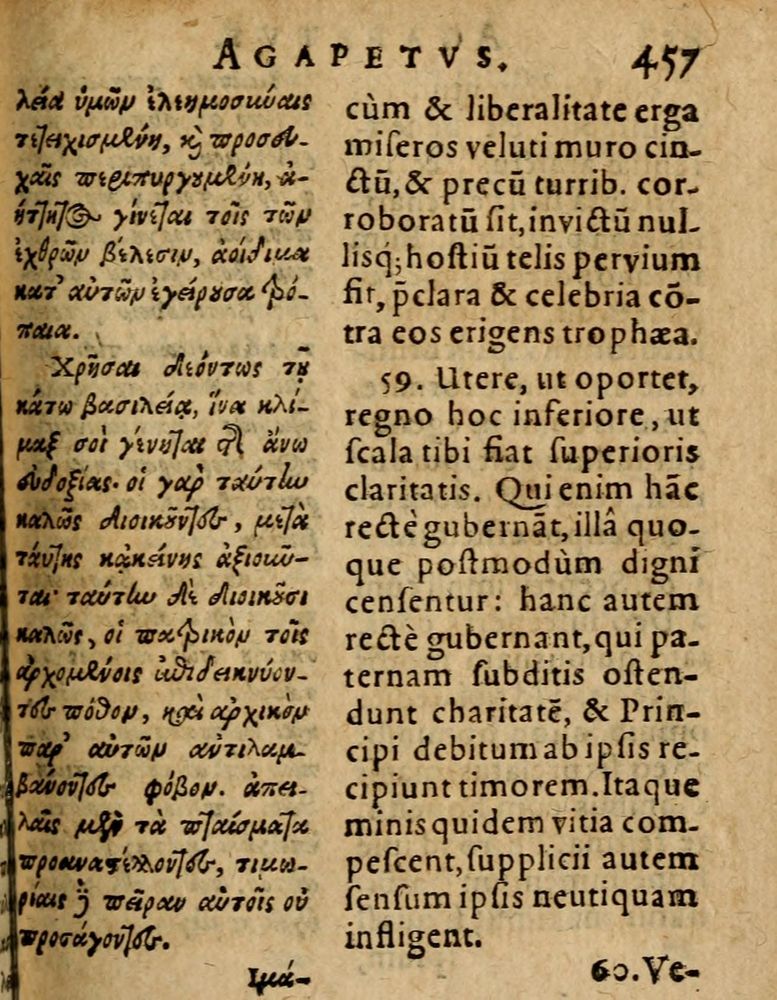 AGAPETVS. 457
λεία ὑμῶν ἐλεημοσύναις
τετειχισμένη, καὶ προσευ-
χαῖς περιπυργουμένη, ἀ-
ήττητος γίνεται τοῖς τῶν
ἐχθρῶν βέλεσιν, ἀοίδιμα
κατ' αὐτῶν ἐγείρουσα τρό-
παια.
Χρῆσαι δεόντως τῇ
κάτω βασιλείᾳ, ἵνα κλί-
μαξ σοὶ γένηται τῆς ἄνω
εὐδοξίας. οἱ γὰρ ταύτην
καλῶς διοικοῦντες, μετὰ
ταύτης κἀκείνης ἀξιοῦν-
ται· ταύτην δὲ διοικοῦσι
καλῶς, οἱ πατρικὸν τοῖς
ἀρχομένοις ἐπιδεικνύον-
τες πόθον, καὶ ἀρχικὸν
παρ' αὐτῶν ἀντιλαμ-
βάνοντες φόβον. ἀπει-
λαῖς μὲν τὰ πταίσματα
προαναστέλλοντες, τιμω-
ρίαις δὲ πεῖραν αὐτοῖς οὐ
προσάγοντες.
Ιμά-
cùm & liberalitate erga
miſeros veluti muro cin-
ctū, & precū turrib. cor-
roboratū ſit, invictū nul-
lisq; hoſtiū telis pervium
fit, p̄clara & celebria cō-
tra eos erigens trophæa.
59. Utere, ut oportet,
regno hoc inferiore, ut
ſcala tibi fiat ſuperioris
claritatis. Qui enim hāc
rectè gubernāt, illâ quo-
que poſtmodùm digni
cenſentur: hanc autem
rectè gubernant, qui pa-
ternam ſubditis oſten-
dunt charitatē, & Prin-
cipi debitum ab ipſis re-
cipiunt timorem. Itaque
minis quidem vitia com-
peſcent, ſupplicii autem
ſenſum ipſis neutiquam
infligent.
60. Ve-